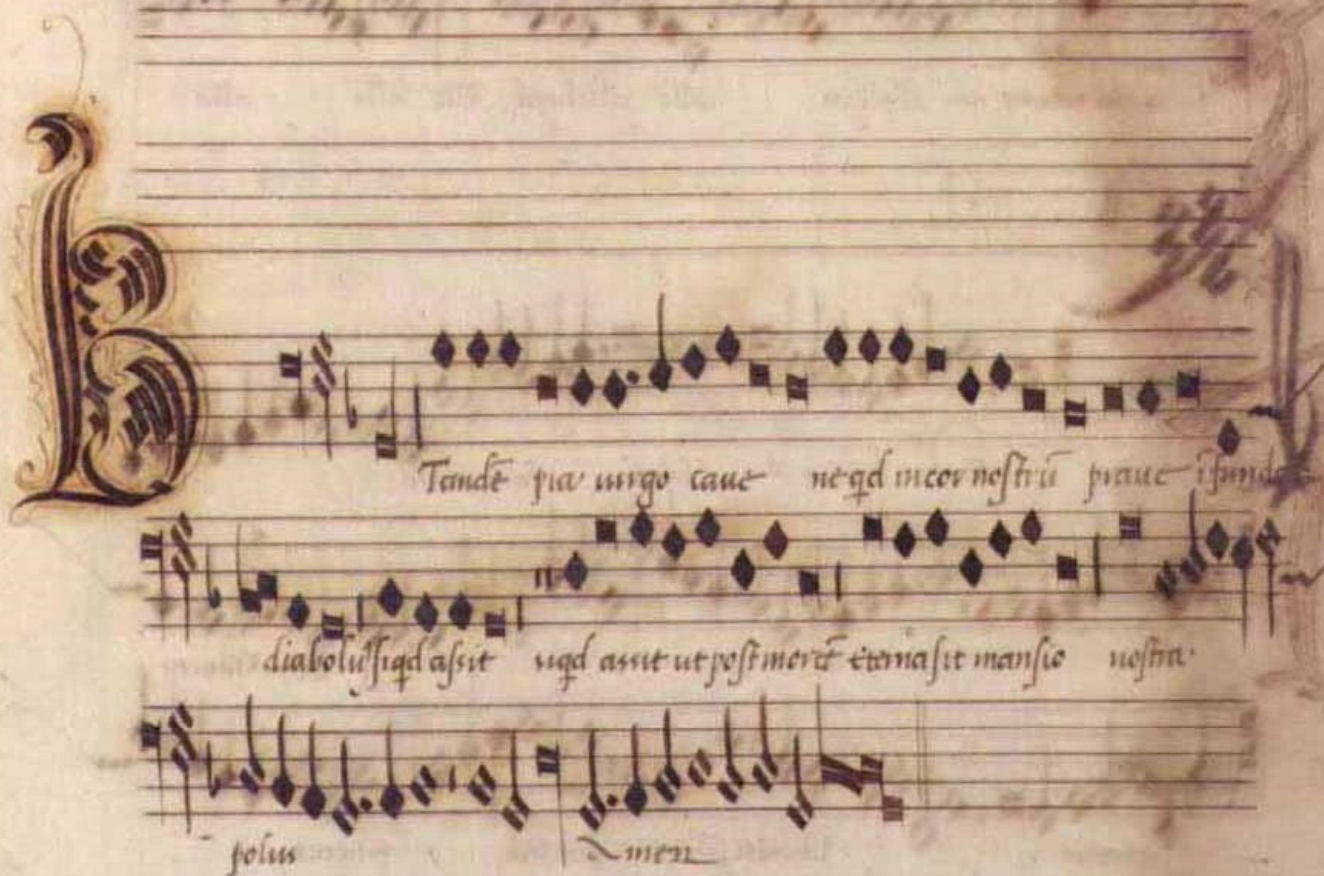 Tandē pia virgo caue ne qd in cor nostrū praue īfundat
diabolus siqd assit uqd assit ut post mortē eterna sit mansio nostra
polus Amen